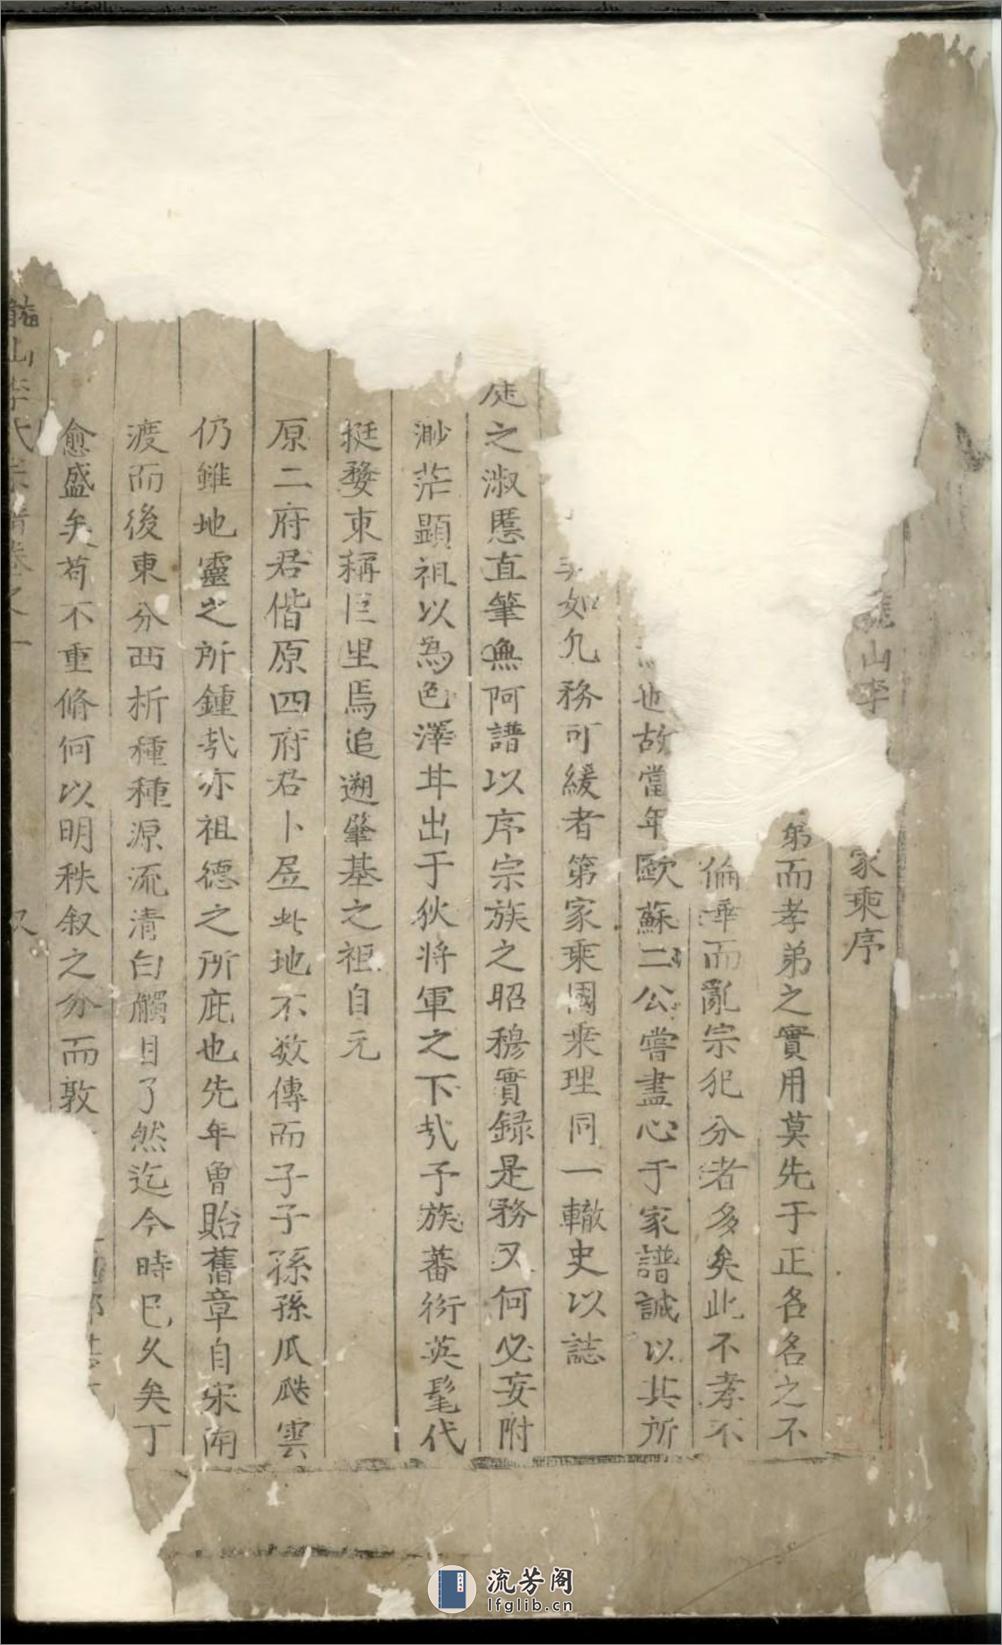 龍山李
家乘序
弟而孝弟之實用莫先于正名名之不
倫瀆而亂宗犯分者多矣此不孝不
也故當年歐蘇二公嘗盡心于家譜誠以其所
如凢務可緩者第家乘國乘理同一轍史以誌
之淑慝直筆無阿譜以序宗族之昭穆實録是務又何必妄附
渺茫顯祖以為色澤耳出于狄將軍之下㦲予族蕃衍英髦代
挺婺東稱巨里焉追遡肇基之祖自元
原二府君偕原四府君卜居此地不数傳而子子孫孫瓜瓞雲
仍雖地靈之所鍾㦲亦祖德之所庇也先年曾貽舊章自宋南
渡而後東分西析種種源流清白觸目了然迄今時已久矣丁
愈盛矣苟不重脩何以明秩叙之分而敦
龍山李氏宗譜卷之一